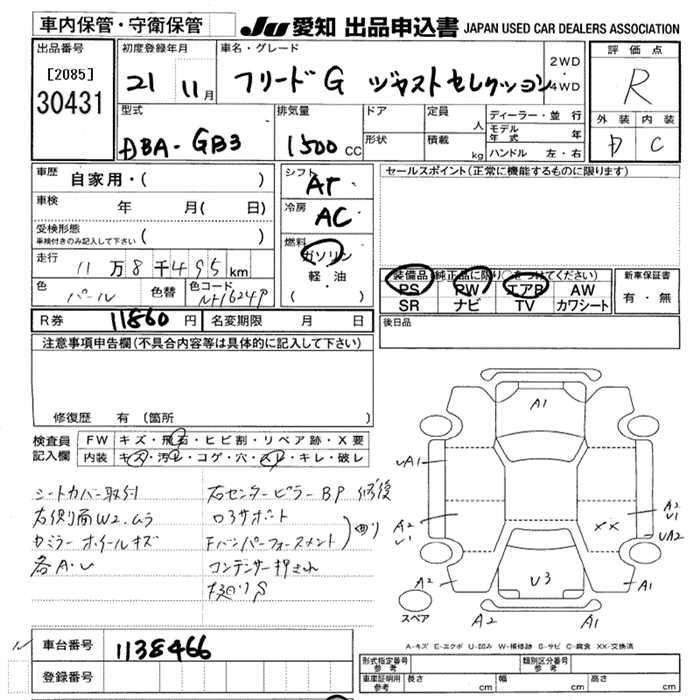 車内保管・守衛保管
JU 愛知 出品申込書 JAPAN USED CAR DEALERS ASSOCIATION
出品番号
[2085]
30431
初度登録年月
21 11月
車名・グレード
フリードG ジャストセレクション
2WD
・
4WD
評価点
R
外装 内装
D C
型式
DBA-GB3
排気量
1500cc
ドア
形状
定員 人
積載 kg
ディーラー・並行
モデル年式 年
ハンドル 左・右
車歴 自家用・( )
車検 年 月( 日)
受検形態
車検付きのみ記入して下さい ( )
走行 11万8千495km
色 パール 色替 色コード NH624P
R券 11860円 名変期限 月 日
シフト AT
冷房 AC
燃料
ガソリン
・
軽・油
( )
セールスポイント(正常に機能するものに限ります)
装備品(純正品に限り○をつけてください)
PS PW エアB AW
SR ナビ TV カワシート
新車保証書
有・無
後日品
注意事項申告欄(不具合内容等は具体的に記入して下さい)
修復歴 有(箇所
検査員記入欄
FW キズ・飛石・ヒビ割・リペア跡・X要
内装 キズ・汚レ・コゲ・穴・スレ・キレ・破レ
シートカバー取付
右側面W2.ムラ
カミラー ホイールキズ
各A.U
右センターピラーBP 修復
ロアサポート
Fバンパーフォースメント
コンデンサー押され
A1
UA1
A2
U1
A2
A2
U3
XX
A2
U1
UA2
A1
A1
スペア
A-キズ E-エクボ U-凹み W-補修跡 S-サビ C-腐食 XX-交換済
車台番号 1138466
登録番号
形式指定番号 参考
類別区分番号 参考
車庫証明用 参考 長さ cm 幅 cm 高さ cm